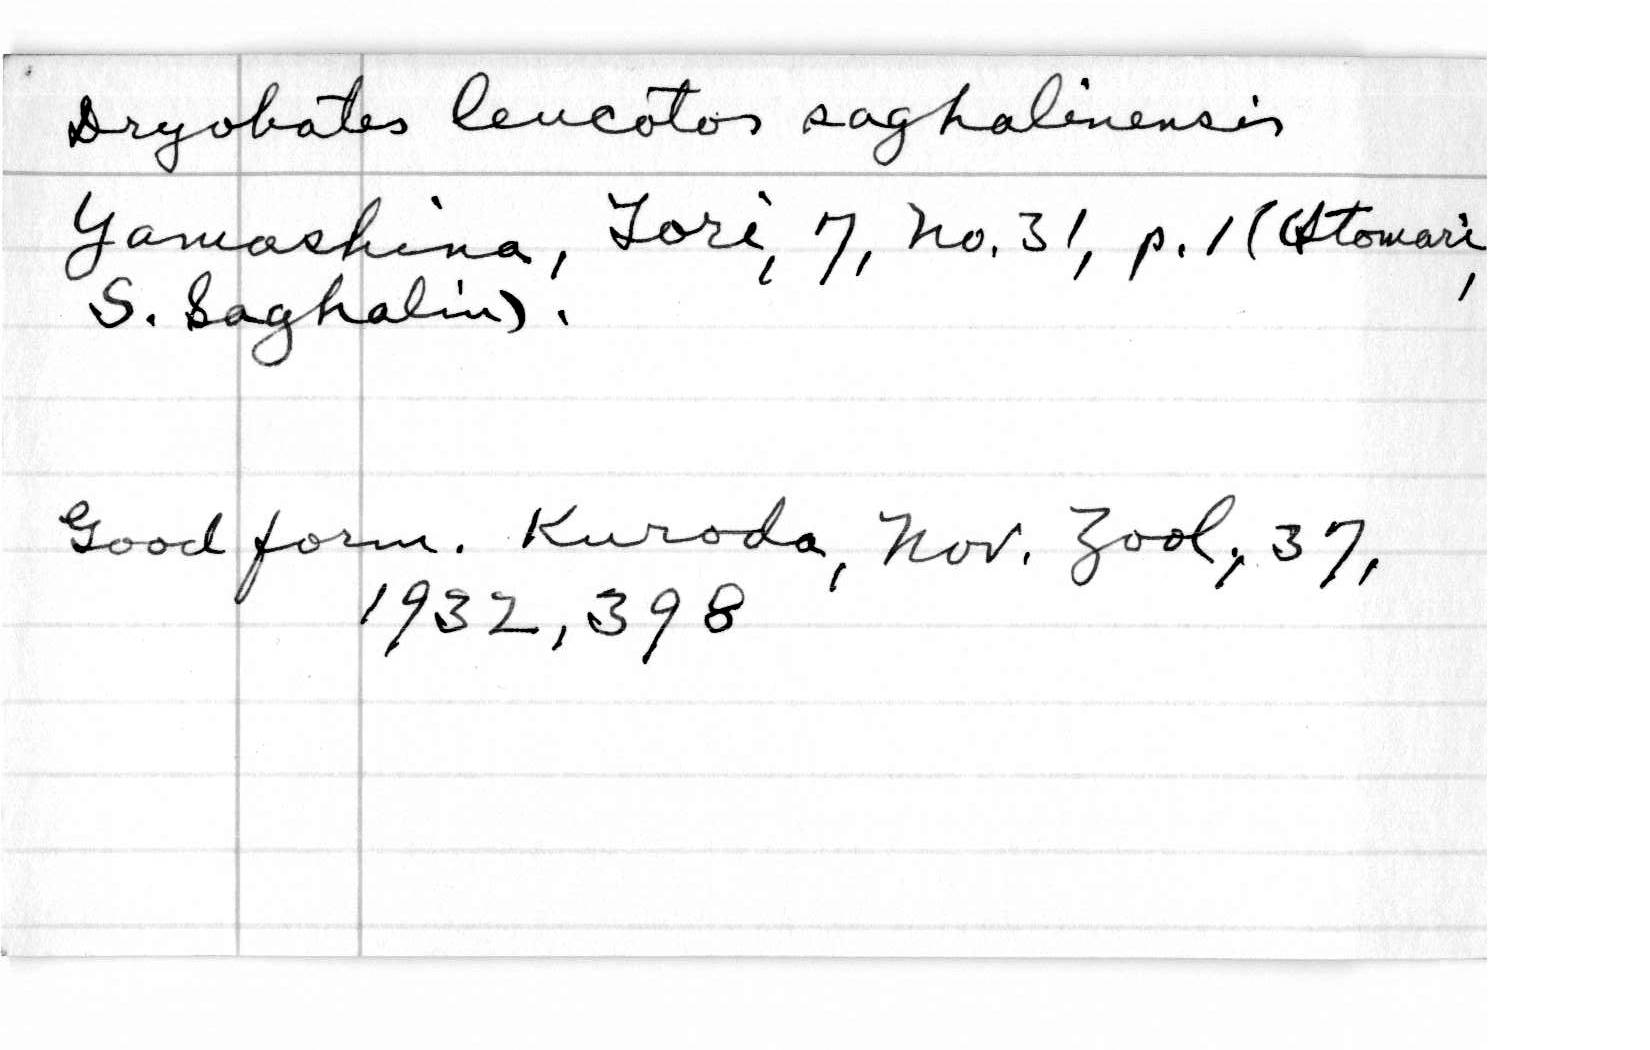 Dryobates leucotos saghalinensis
Yamashina, Tori, 7, No. 31, p. 1 (Otomari,
S. Saghalin).
Good form. Kuroda, Nov. Zool., 37,
1932, 398